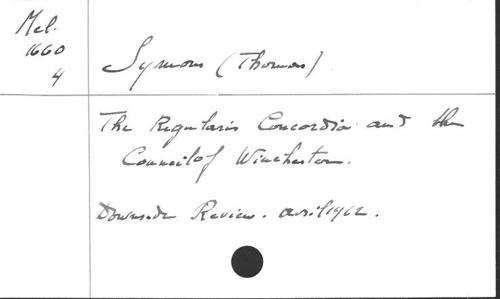 Mel.
1660
4
Symons (Thomas)
The Regularis Concordia and the
Council of Winchester.
Downside Review. avril 1962.